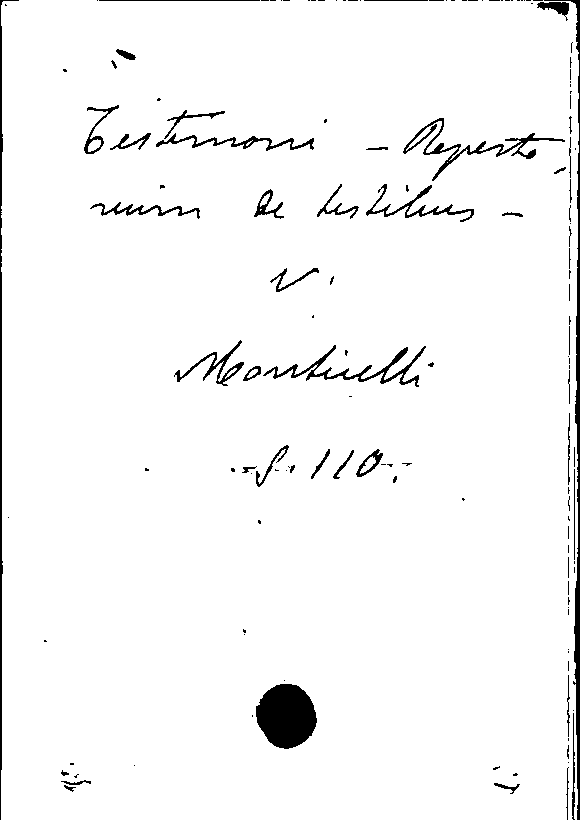 Testimoni - Reperto,
rium de testibus -
V.
Monticelli
S. 110.